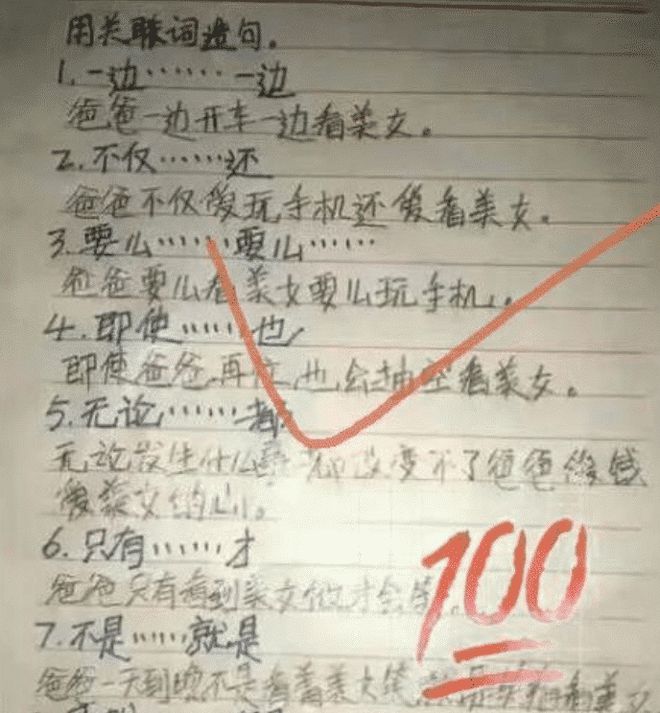 用关联词造句。
1.一边……一边
爸爸一边开车一边看美女。
2.不仅……还
爸爸不仅爱玩手机还爱看美女。
3.要么……要么……
爸爸要么看美女要么玩手机。
4.即使……也
即使爸爸再忙,也会抽空看美女。
5.无论……都
无论发生什么事都改变不了爸爸
爱美女的心。
6.只有……才
爸爸只有看到美女他才会笑。
7.不是……就是
爸爸一天到晚不是看着美女笑,就是看美女
100